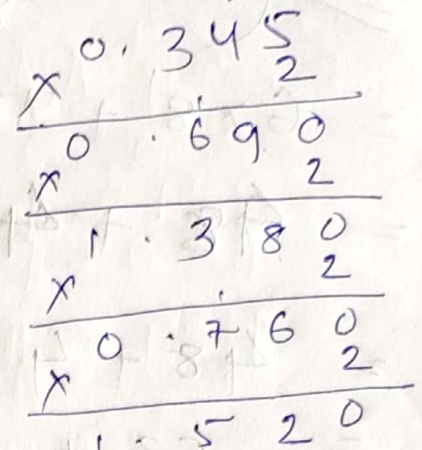 0.345
× 2
0.690
× 2
1.380
× 2
0.760
× 2
1.520